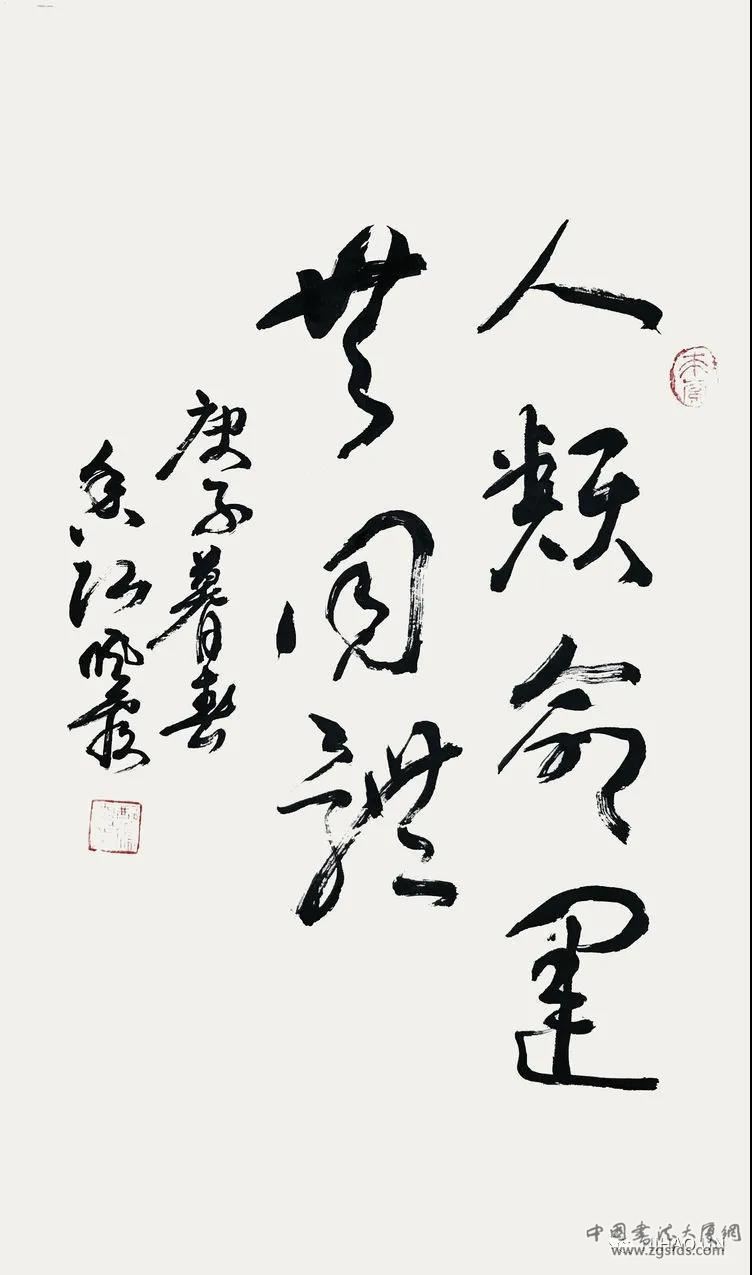 人類命運
共同體
庚子暮春
香江
中国書法大厦網
www.zgsfds.com